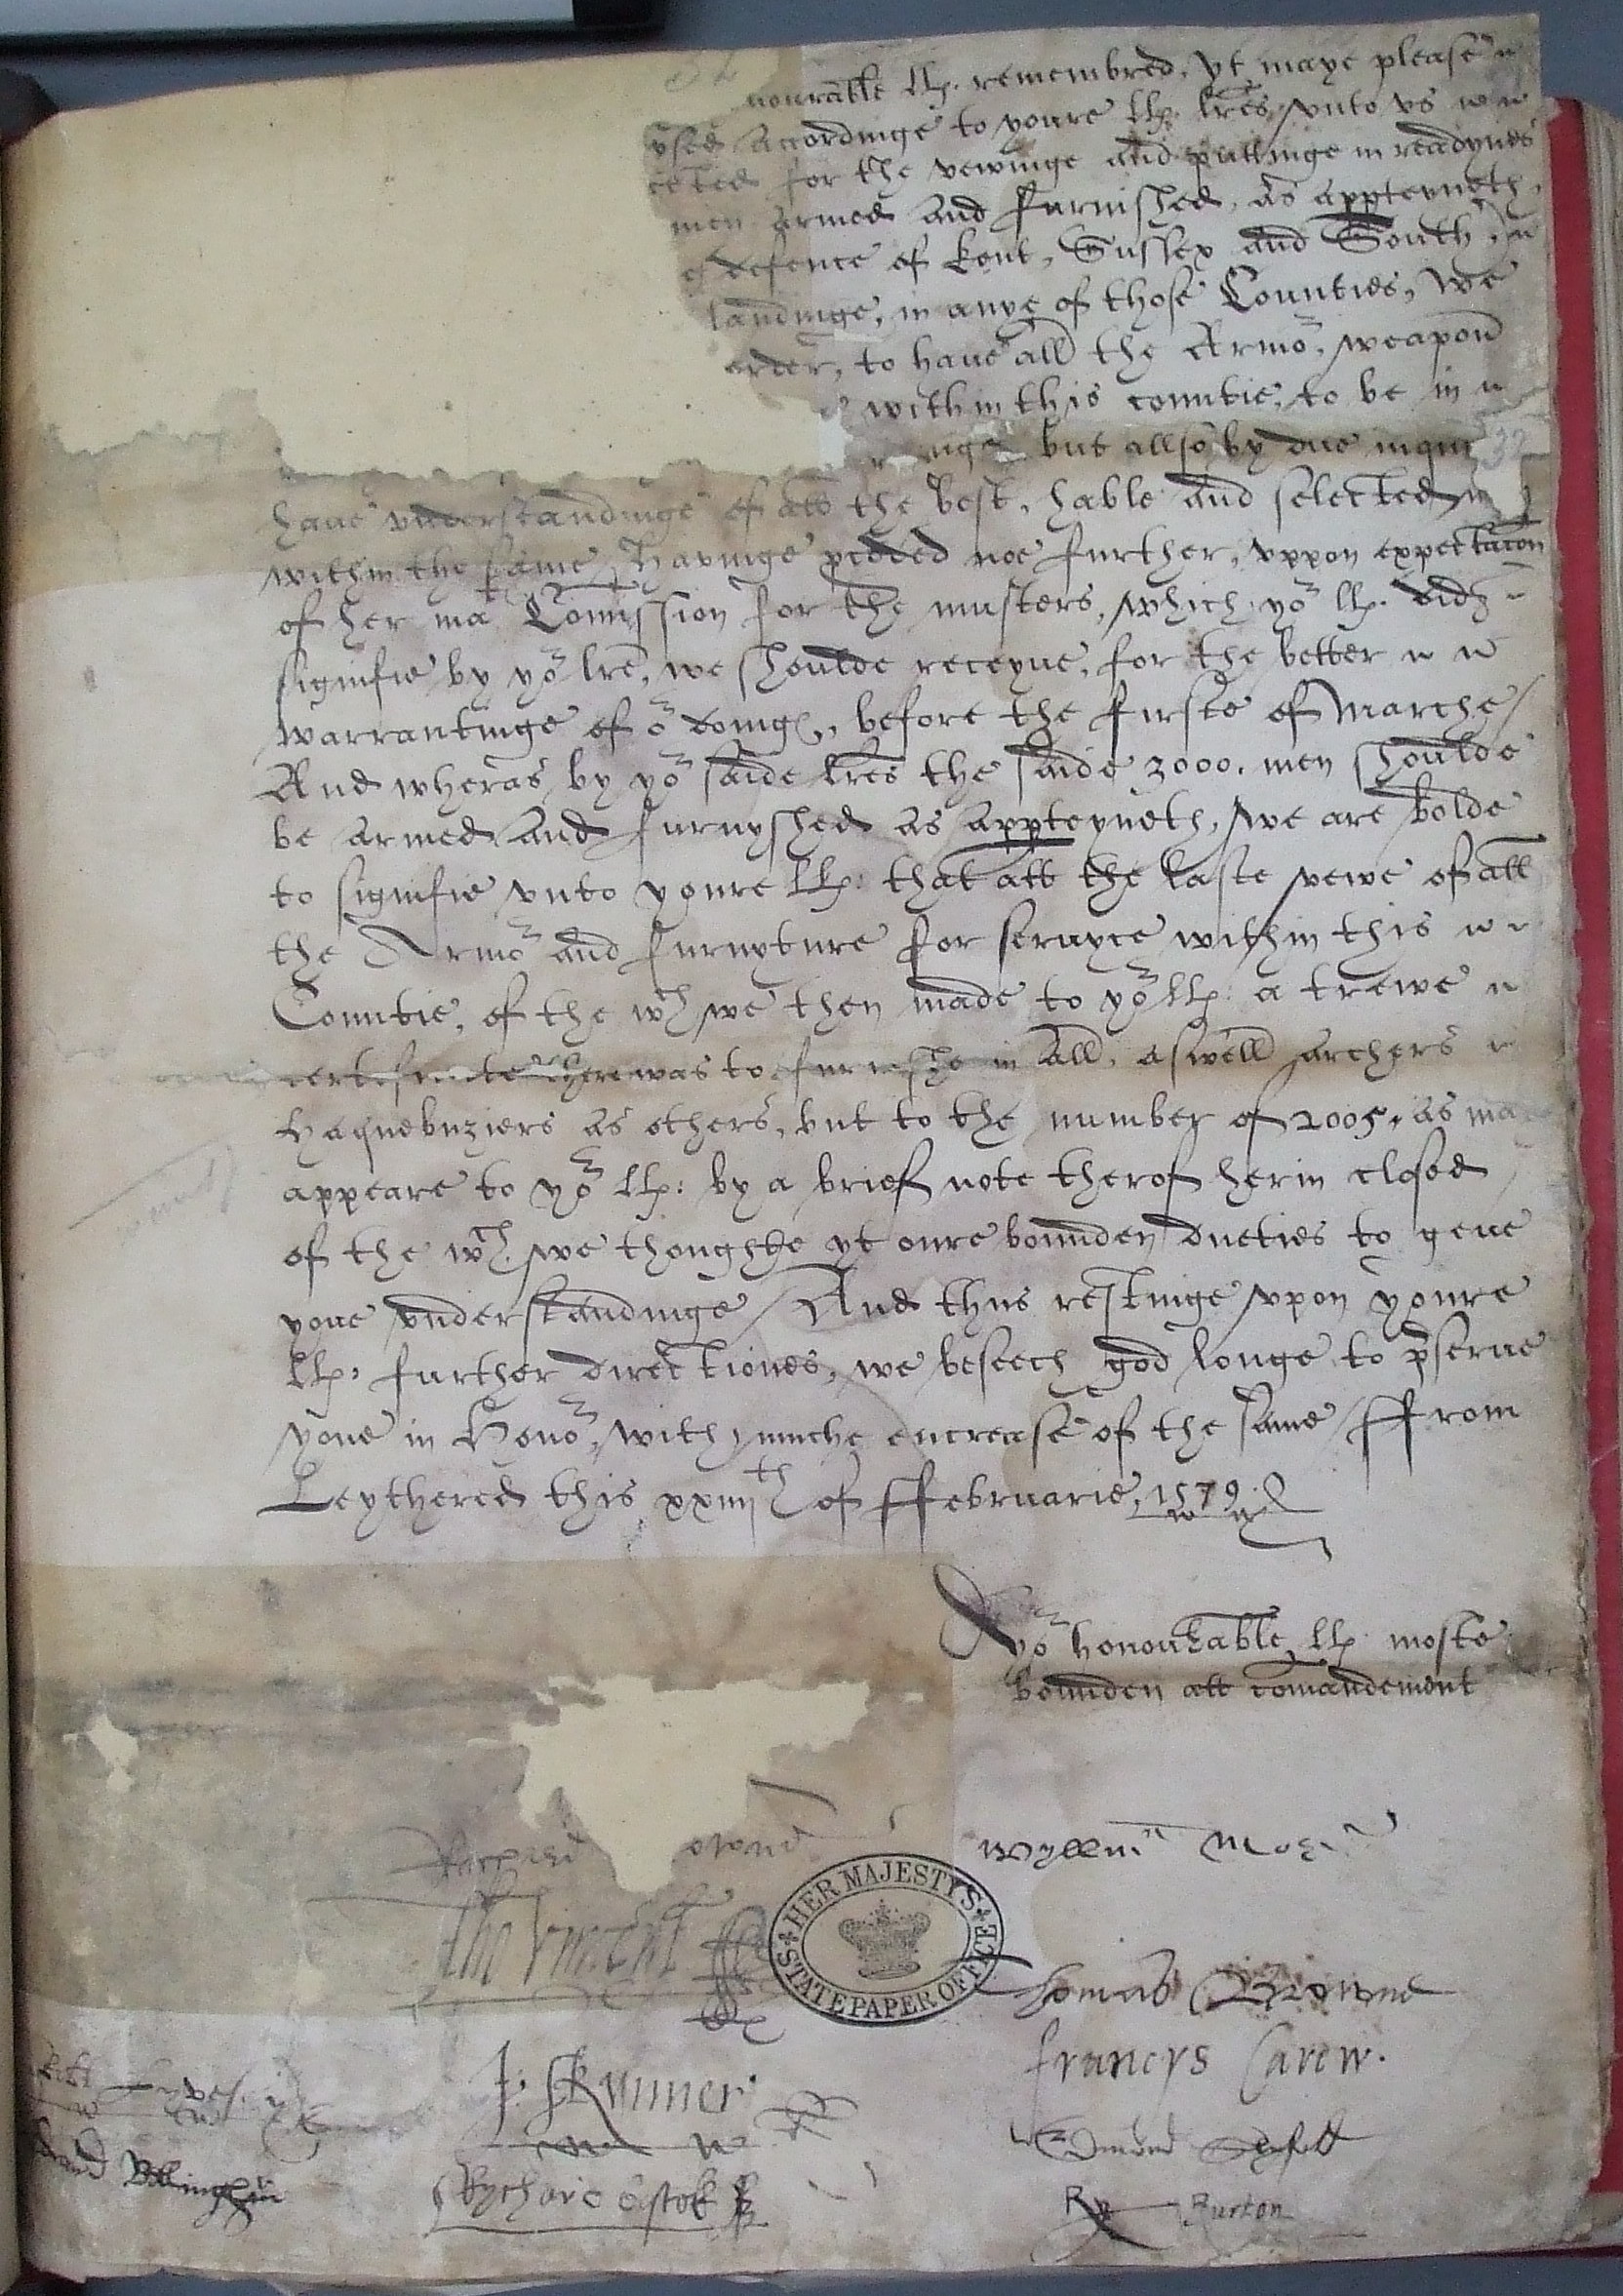 nourable llp. remembred, yt maye please
vsed accordinge to youre llp. lres vnto vs
cted for the vewinge and puttinge in readynes
men armed and furnished, as appteyneth,
defence of Kent, Sussex and South,
landinge, in anye of those Counties, we
order, to haue all the Armor, weapon
within this countie, to be in
but allso by due inqui
32
haue vnderstandinge of all the best, hable and selected
within the same, Havinge pceded noe further, vppon expectacon
of her mats Comission for the musters, which yor llp. did
signifie by yor lre, we shoulde receyue, for the better
warrantinge of or doinges, before the firste of Marche /
And wheras by yor saide lres the saide 3000. men shoulde
be armed and furnyshed as appteyneth, we are bolde
to signifie vnto youre llp: that att the laste vewe of all
the Armor and furnyture for seruyce within this
Countie, of the wch we then made to yor llp: a trewe
certificate there was to furnishe in all, aswell archers
Haquebuziers as others, but to the number of 2005, as ma
appeare to yor llp: by a brief note therof herin closed
of the wch we thoughte yt oure bounden dueties to geue
youe vnderstandinge / And thus restinge vpon youre
llp: further directiones, we beseech god longe to pserue
youe in Honor, with muche encrease of the same / ffrom
Leythered this xxiiijth of ffebruarie, 1579.
Yor honourable llp. moste
bounden att comandement
owne
Wyllm Mor
Tho Vincent
HER MAJESTYS STATE PAPER OFFICE
Thomas Browne
J: Skynner.
francys Carew.
Edmund Slyfeld
Bellingham
Rychard Bostok
Ry Burton